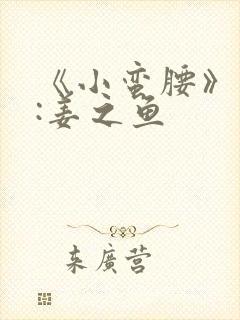 《小蛮腰》
:姜之鱼
来廣营